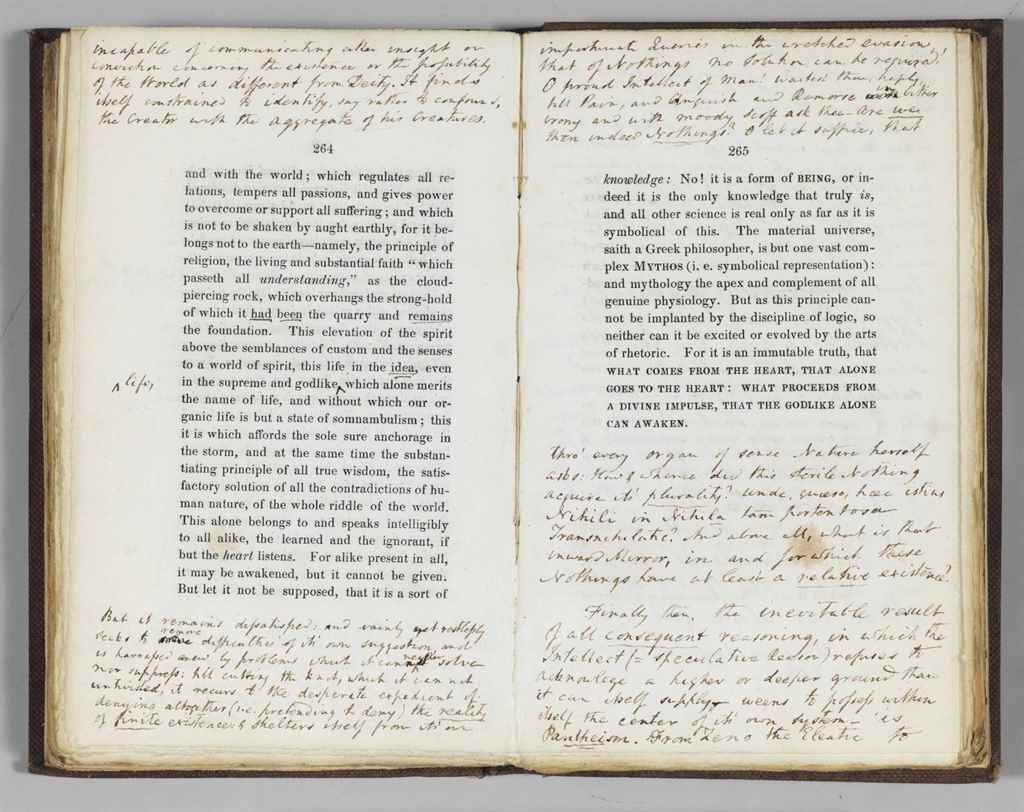 incapable of communicating either insight or
conviction concerning the existence or the possibility
of the World as different from Deity. It finds
itself constrained to identify, say rather to confound,
the Creator with the Aggregate of his Creatures.
264
and with the world; which regulates all re-
lations, tempers all passions, and gives power
to overcome or support all suffering; and which
is not to be shaken by aught earthly, for it be-
longs not to the earth—namely, the principle of
religion, the living and substantial faith “which
passeth all understanding,” as the cloud-
piercing rock, which overhangs the strong-hold
of which it had been the quarry and remains
the foundation. This elevation of the spirit
above the semblances of custom and the senses
to a world of spirit, this life in the idea, even
in the supreme and godlike, which alone merits
^ life,
the name of life, and without which our or-
ganic life is but a state of somnambulism; this
it is which affords the sole sure anchorage in
the storm, and at the same time the substan-
tiating principle of all true wisdom, the satis-
factory solution of all the contradictions of hu-
man nature, of the whole riddle of the world.
This alone belongs to and speaks intelligibly
to all alike, the learned and the ignorant, if
but the heart listens. For alike present in all,
it may be awakened, but it cannot be given.
But let it not be supposed, that it is a sort of
But it remains dissatisfied: and vainly yet restlessly
seeks to remove difficulties of it's own suggestion, and
is harrassed anew by problems which it can neither solve
nor suppress: till cutting the knot, which it can not
it recurs to the desperate expedient of
denying altogether (i.e. pretending to deny) the reality
of finite existence & shelters itself from it's own
importunate Queries in the wretched evasion,
that of Nothings no solution can be required!
O proud Intellect of Man! wait then, haply,
till Pain, and Anguish and Remorse with bitter
irony and with moody scoff ask thee—Are we
then indeed Nothings? O let it suffice, that
265
knowledge: No! it is a form of BEING, or in-
deed it is the only knowledge that truly is,
and all other science is real only as far as it is
symbolical of this. The material universe,
saith a Greek philosopher, is but one vast com-
plex MYTHOS (i. e. symbolical representation):
and mythology the apex and complement of all
genuine physiology. But as this principle can-
not be implanted by the discipline of logic, so
neither can it be excited or evolved by the arts
of rhetoric. For it is an immutable truth, that
WHAT COMES FROM THE HEART, THAT ALONE
GOES TO THE HEART: WHAT PROCEEDS FROM
A DIVINE IMPULSE, THAT THE GODLIKE ALONE
CAN AWAKEN.
thro' every organ of sense Nature herself
asks: How & whence did this sterile Nothing
acquire it's plurality? Unde, quæso, hæc istius
Nihili in Nihila tam portentosa
Transnihilatio? And above all, what is that
inward Mirror, in and for which these
Nothings have at least a relative existence?
Finally then, the inevitable result
of all consequent reasoning, in which the
Intellect (= speculative Reason) refuses to
acknowlege a higher or deeper ground than
it can itself supply, weens to possess within
itself the center of it's own system—is
Pantheism. From Zeno the Eleatic to